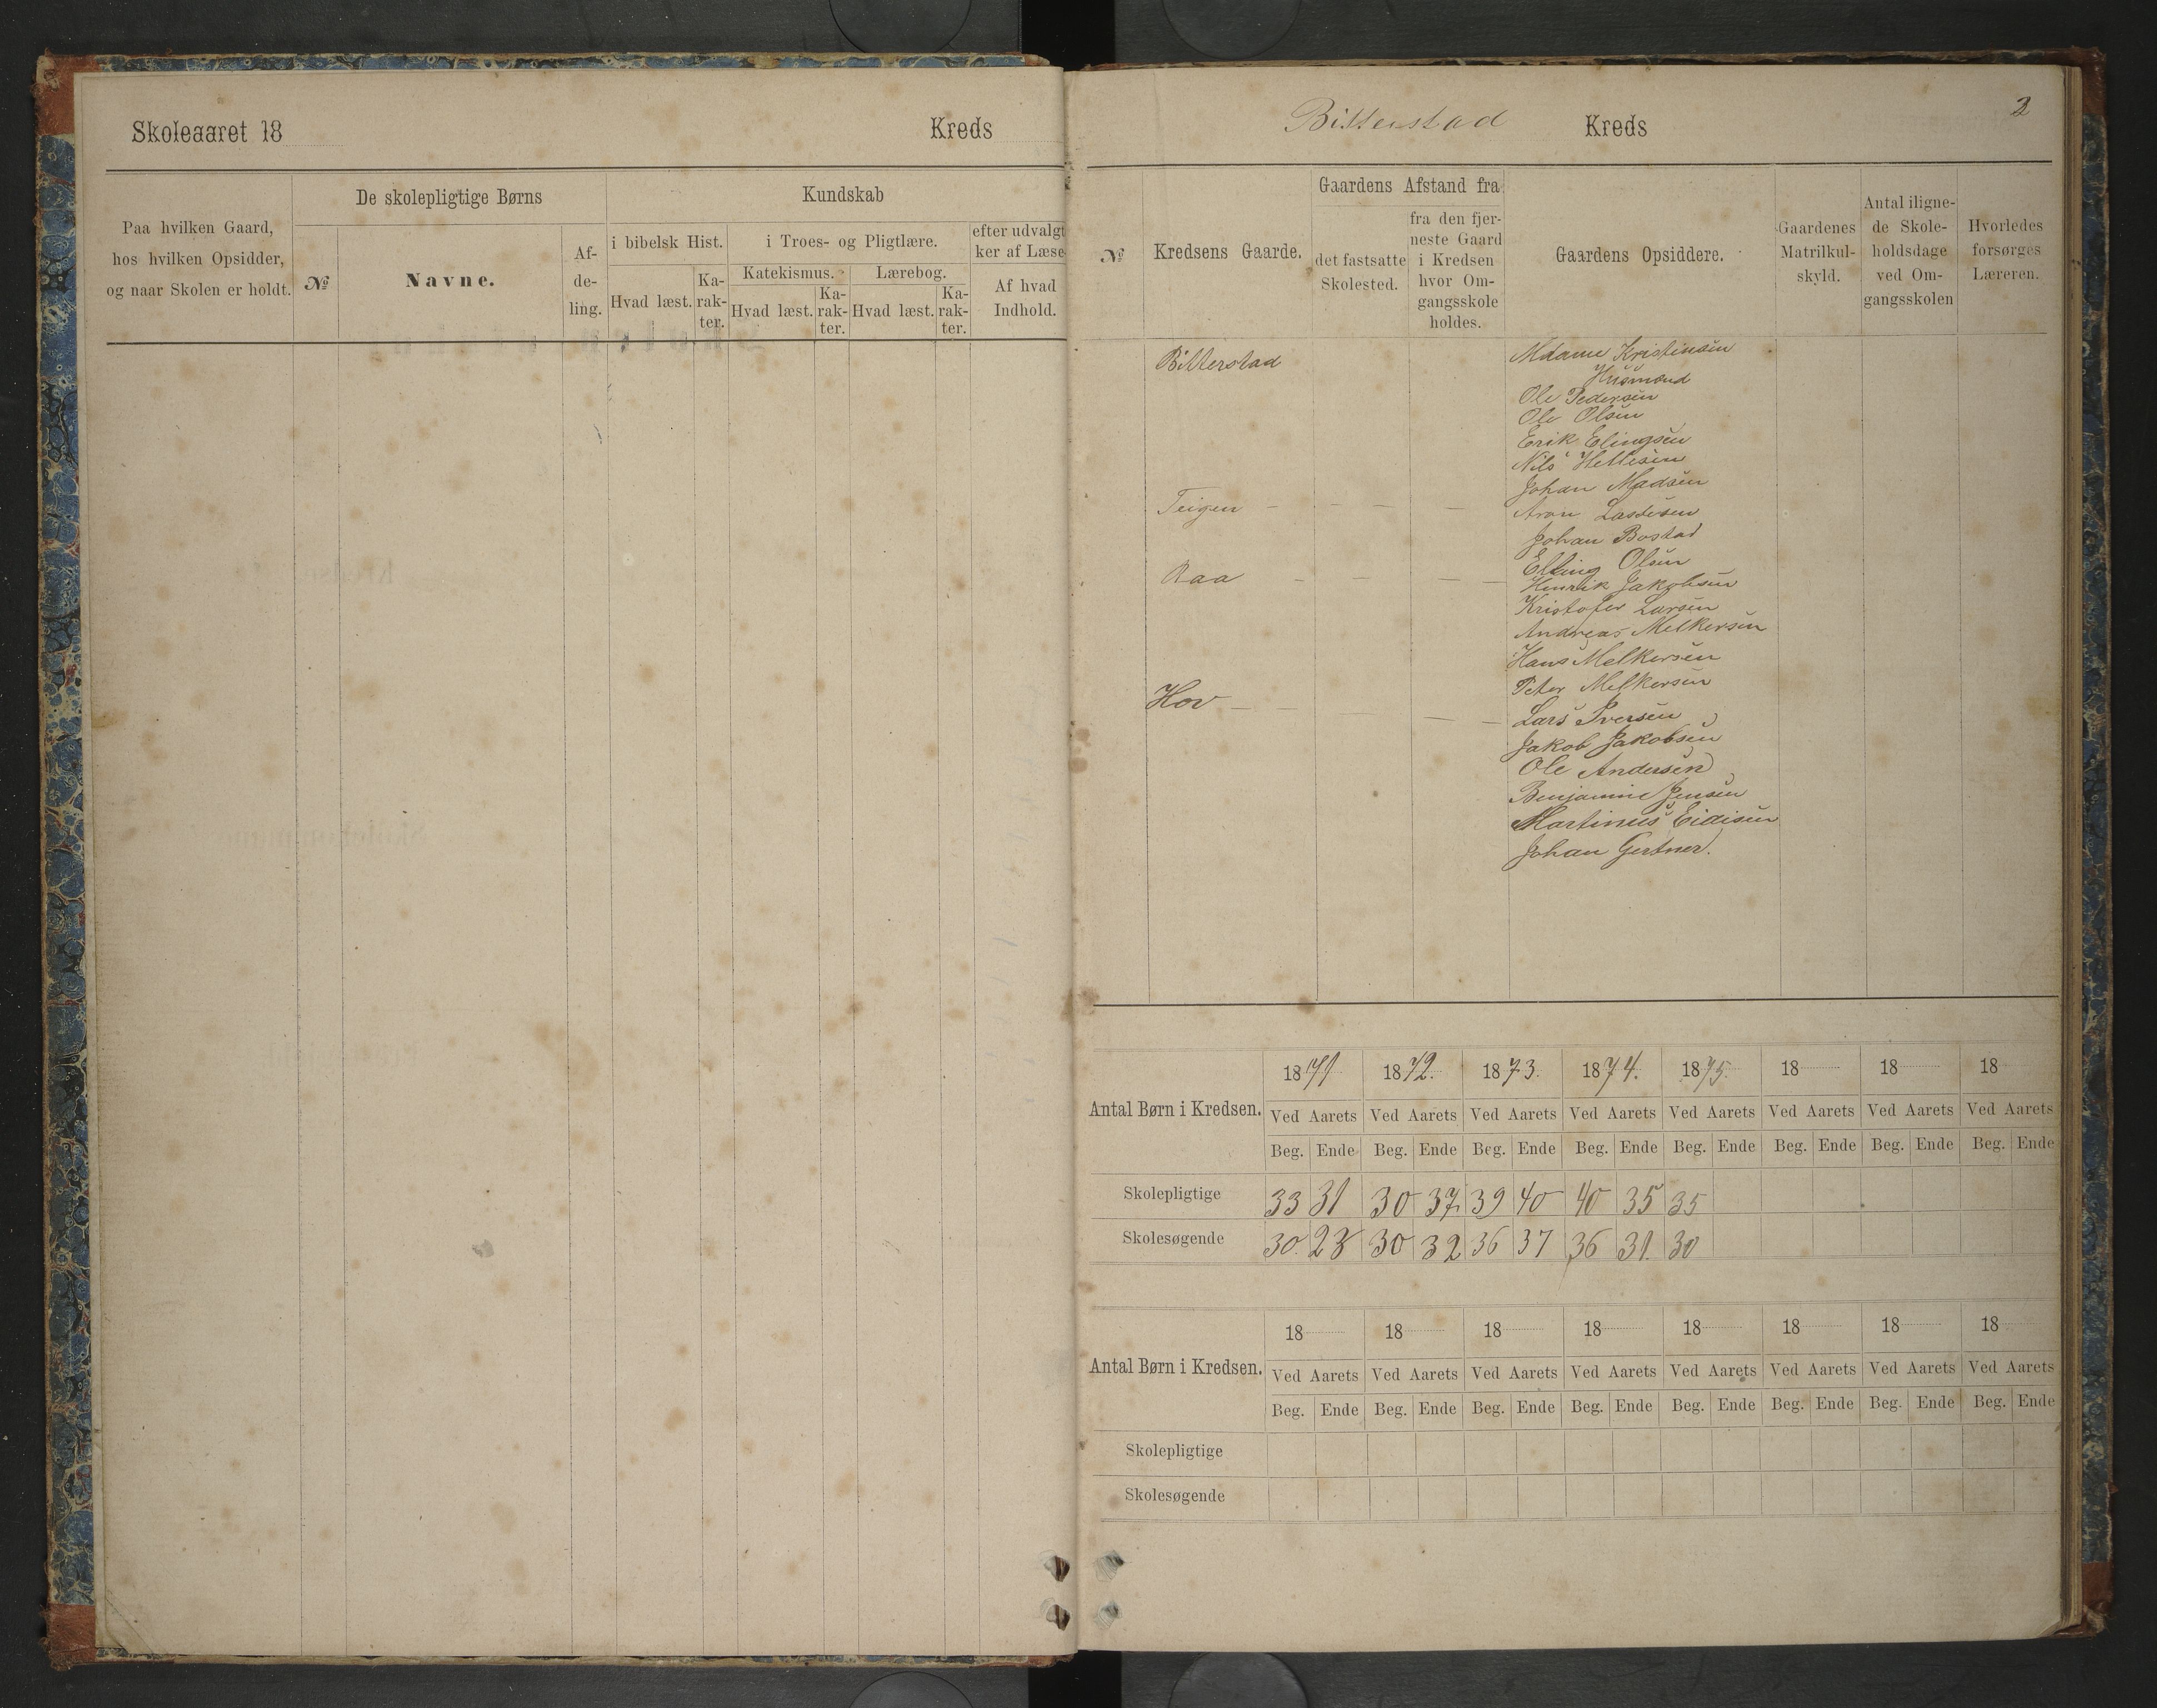 Skoleaaret 18
Kreds
Paa hvilken Gaard,
hos hvilken Opsidder,
og naar Skolen er holdt.
De skolepligtige Børns
№
Navne.
Af-
de-
ling.
Kundskab
i bibelsk Hist.
Hvad læst.
Ka-
rak-
ter.
i Troes- og Pligtlære.
Katekismus.
Hvad læst.
Ka-
rak-
ter.
Lærebog.
Hvad læst.
Ka-
rak-
ter.
efter udvalgt
ker af Læse-
Af hvad
Indhold.
Bitterstad Kreds
2
№
Kredsens Gaarde.
Gaardens Afstand fra
det fastsatte
Skolested.
fra den fjer-
neste Gaard
i Kredsen
hvor Om-
gangsskole
holdes.
Gaardens Opsiddere.
Gaardenes
Matrilkul-
skyld.
Antal iligne-
de Skole-
holdsdage
ved Om-
gangsskolen
Hvorledes
forsørges
Læreren.
Bitterstad
Mdame Kristinsen
Husmænd
Ole Pedersen
Ole Olsen
Erik Elingsen
Nils
Johan Madsen
Teigen — — — — Aron Lassesen
Johan Bostad
Elling Olsen
Raa — — — — Henrik Jakobsen
Kristofer Larsen
Andreas Melkersen
Hans Melkersen
Peter Melkersen
Hov — — — — — Lars Iversen
Jakob Jakobsen
Ole Andersen
Benjamin Jensen
Martinus Eidisen
Johan Gertner.
Antal Børn i Kredsen.
1871 1872. 1873. 1874. 1875. 18 18 18
Ved Aarets Ved Aarets Ved Aarets Ved Aarets Ved Aarets Ved Aarets Ved Aarets Ved Aarets
Beg. Ende Beg. Ende Beg. Ende Beg. Ende Beg. Ende Beg. Ende Beg. Ende Beg. Ende
Skolepligtige 33 31 30 37 39 40 40 35 35
Skolesøgende 30. 23 30 32 36 37 36 31. 30
Antal Børn i Kredsen.
18 18 18 18 18 18 18 18
Ved Aarets Ved Aarets Ved Aarets Ved Aarets Ved Aarets Ved Aarets Ved Aarets Ved Aarets
Beg. Ende Beg. Ende Beg. Ende Beg. Ende Beg. Ende Beg. Ende Beg. Ende Beg. Ende
Skolepligtige
Skolesøgende